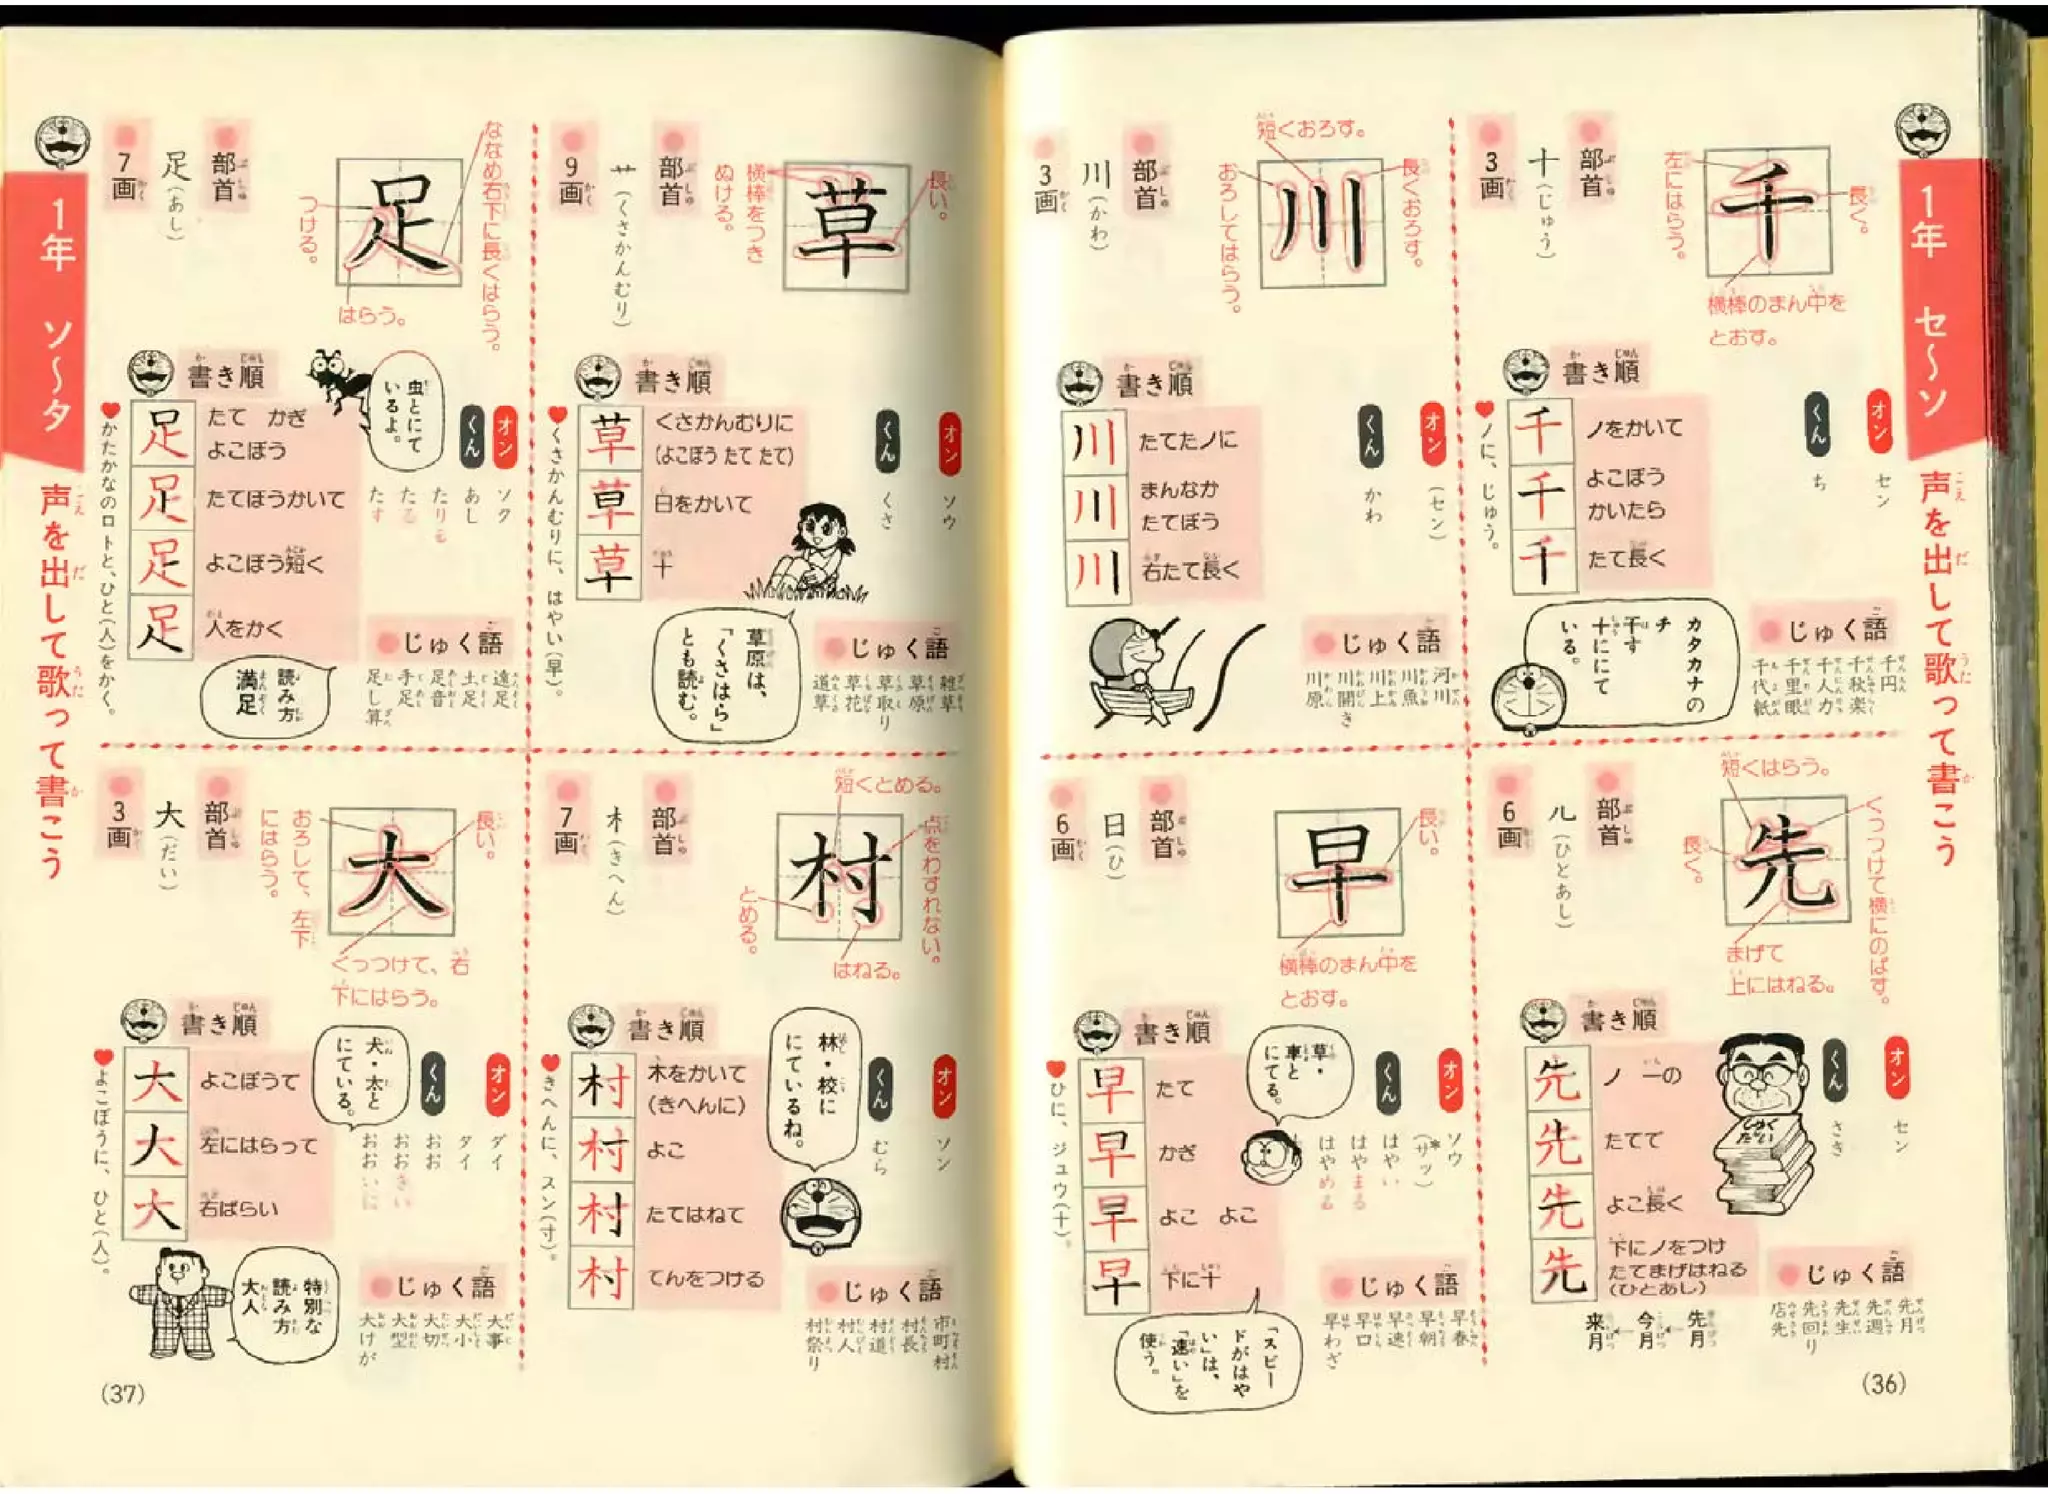 1年 セ〜ソ
声を出して歌って書こう
千
左にはらう。
長く。
横棒のまん中を
とおす。
部首
十(じゅう)
3画
書き順
ノをかいて
よこぼう
かいたら
たて長く
♥ノに、じゅう。
オン
セン
くん
ち
カタカナの
チ
干す
十ににて
いる。
じゅく語
千円
千秋楽
千人力
千里眼
千代紙
川
短くおろす。
長くおろす。
おろしてはらう。
部首
川(かわ)
3画
書き順
たてたノに
まんなか
たてぼう
右たて長く
オン
(セン)
くん
かわ
じゅく語
河川
川魚
川上
川開き
川原
先
短くはらう。
くっつけて横にのばす。
長く。
まげて
上にはねる。
部首
儿(ひとあし)
6画
書き順
ノ 一の
たてで
よこ長く
下にノをつけ
たてまげはねる
(ひとあし)
オン
セン
くん
さき
じゅく語
先月
先週
先生
先回り
店先
先月←今月←来月
早
長い。
横棒のまん中を
とおす。
部首
日(ひ)
6画
書き順
たて
かぎ
よこ よこ
下に十
♥ひに、ジュウ(十)。
草・
車と
にてる。
オン
ソウ
(サッ)*
くん
はやい
はやまる
はやめる
じゅく語
早春
早朝
早速
早口
早わざ
「スピー
ドがはや
い」は、
「速い」を
使う。
(36)
1年 ソ〜タ
声を出して歌って書こう
草
長い。
横棒をつき
ぬける。
部首
艹(くさかんむり)
9画
書き順
くさかんむりに
(よこぼう たて たて)
日をかいて
十
♥くさかんむりに、はやい(早)。
オン
ソウ
くん
くさ
草原は、
「くさはら」
とも読む。
じゅく語
雑草
草原
草取り
草花
道草
足
ななめ右下に長くはらう。
つける。
はらう。
部首
足(あし)
7画
書き順
たて かぎ
よこぼう
たてぼうかいて
よこぼう短く
人をかく
♥かたかなのロトと、ひと(人)をかく。
虫とにて
いるよ。
オン
ソク
くん
あし
たりる
たる
たす
じゅく語
遠足
土足
足音
手足
足し算
読み方
満足
村
短くとめる。
点をわすれない。
とめる。
はねる。
部首
木(きへん)
7画
書き順
木をかいて
(きへんに)
よこ
たてはねて
てんをつける
♥きへんに、スン(寸)。
林・校に
にているね。
オン
ソン
くん
むら
じゅく語
市町村
村長
村道
村人
村祭り
大
長い。
おろして、左下
にはらう。
くっつけて、右
下にはらう。
部首
大(だい)
3画
書き順
よこぼうて
左にはらって
右ばらい
♥よこぼうに、ひと(人)。
犬・太と
にている。
オン
ダイ
タイ
くん
おお
おおきい
おおいに
じゅく語
大事
大小
大切
大型
大けが
特別な
読み方
大人
(37)